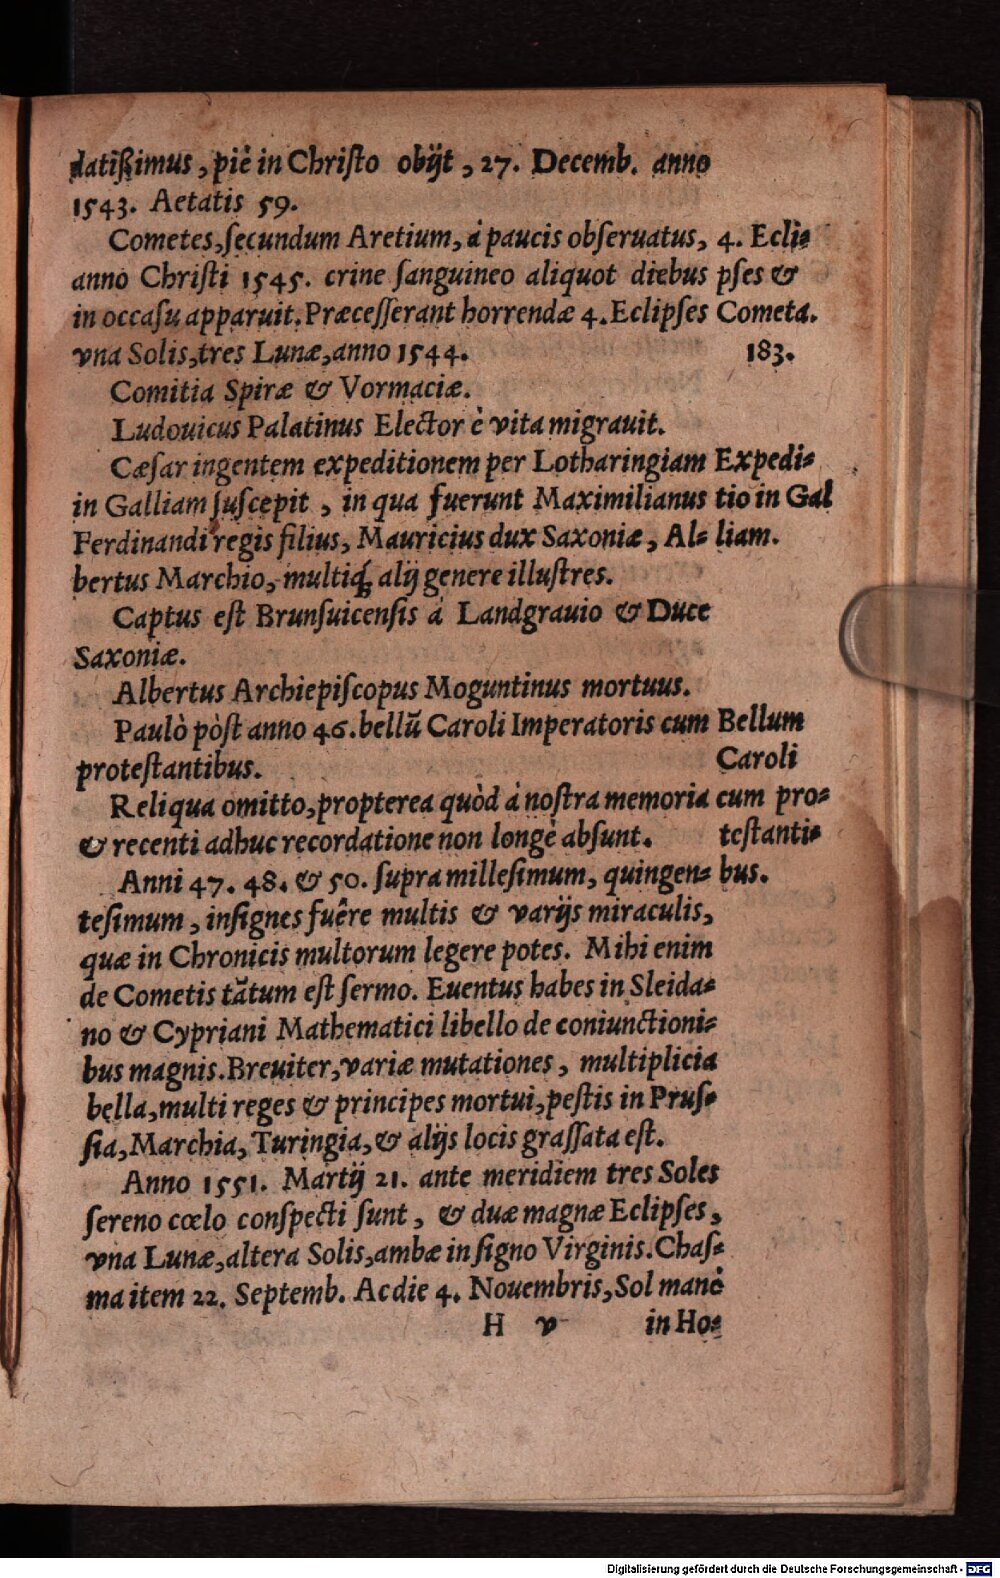 datiſsimus, piè in Chriſto obijt, 27. Decemb. anno
1543. Aetatis 59.
Cometes, ſecundum Aretium, á paucis obſeruatus,
anno Chriſti 1545. crine ſanguineo aliquot diebus
in occaſu apparuit. Præceſſerant horrendæ 4. Eclipſes
vna Solis, tres Lunæ, anno 1544.
4. Ecli-
pſes &
Cometa.
183.
Comitia Spiræ & Vormaciæ.
Ludouicus Palatinus Elector è vita migrauit.
Cæſar ingentem expeditionem per Lotharingiam
in Galliam ſuſcepit, in qua fuerunt Maximilianus
Ferdinandi regis filius, Mauricius dux Saxoniæ, Al-
bertus Marchio, multiq́; alij genere illuſtres.
Expedi-
tio in Gal
liam.
Captus eſt Brunſuicenſis á Landgrauio & Duce
Saxoniæ.
Albertus Archiepiſcopus Moguntinus mortuus.
Paulò pòſt anno 46. bellū Caroli Imperatoris cum
proteſtantibus.
Reliqua omitto, propterea quòd á noſtra memoria
& recenti adhuc recordatione non longè abſunt.
Bellum
Caroli
cum pro-
teſtanti-
bus.
Anni 47. 48. & 50. ſupra milleſimum, quingen-
teſimum, inſignes fuêre multis & varijs miraculis,
quæ in Chronicis multorum legere potes. Mihi enim
de Cometis tātum eſt ſermo. Euentus habes in Sleida-
no & Cypriani Mathematici libello de coniunctioni-
bus magnis. Breuiter, variæ mutationes, multiplicia
bella, multi reges & principes mortui, peſtis in Pruſ-
ſia, Marchia, Turingia, & alijs locis graſſata eſt.
Anno 1551. Martij 21. ante meridiem tres Soles
ſereno cœlo conſpecti ſunt, & duæ magnæ Eclipſes,
vna Lunæ, altera Solis, ambæ in ſigno Virginis. Chaſ-
ma item 22. Septemb. Ac die 4. Nouembris, Sol manè
H v in Ho-
Digitalisierung gefördert durch die Deutsche Forschungsgemeinschaft - DFG